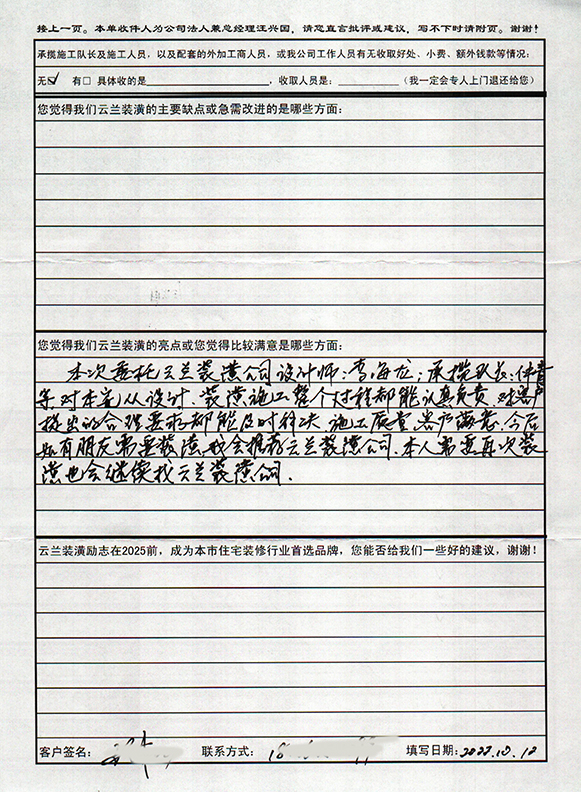 接上一页。本单收件人为公司法人兼总经理汪兴国，请您直言批评或建议，写不下时请附页。谢谢！
承揽施工队长及施工人员，以及配套的外加工商人员，或我公司工作人员有无收取好处、小费、额外钱款等情况：
无☑ 有□ 具体收的是＿＿＿＿，收取人员是：＿＿＿＿（我一定会专人上门退还给您）
您觉得我们云兰装潢的主要缺点或急需改进的是哪些方面：
您觉得我们云兰装潢的亮点或您觉得比较满意是哪些方面：
本次委托云兰装潢公司设计师：李海龙；承揽队长：
等对本宅从设计、装潢施工整个过程都能认真负责 对客户
提出的合理要求都能及时解决。施工质量客户满意。今后
如有朋友需要装潢我会推荐云兰装潢公司。本人需要再次装
潢也会继续找云兰装潢公司.
云兰装潢励志在2025前，成为本市住宅装修行业首选品牌，您能否给我们一些好的建议，谢谢！
客户签名： 联系方式： 填写日期：2022.10.12